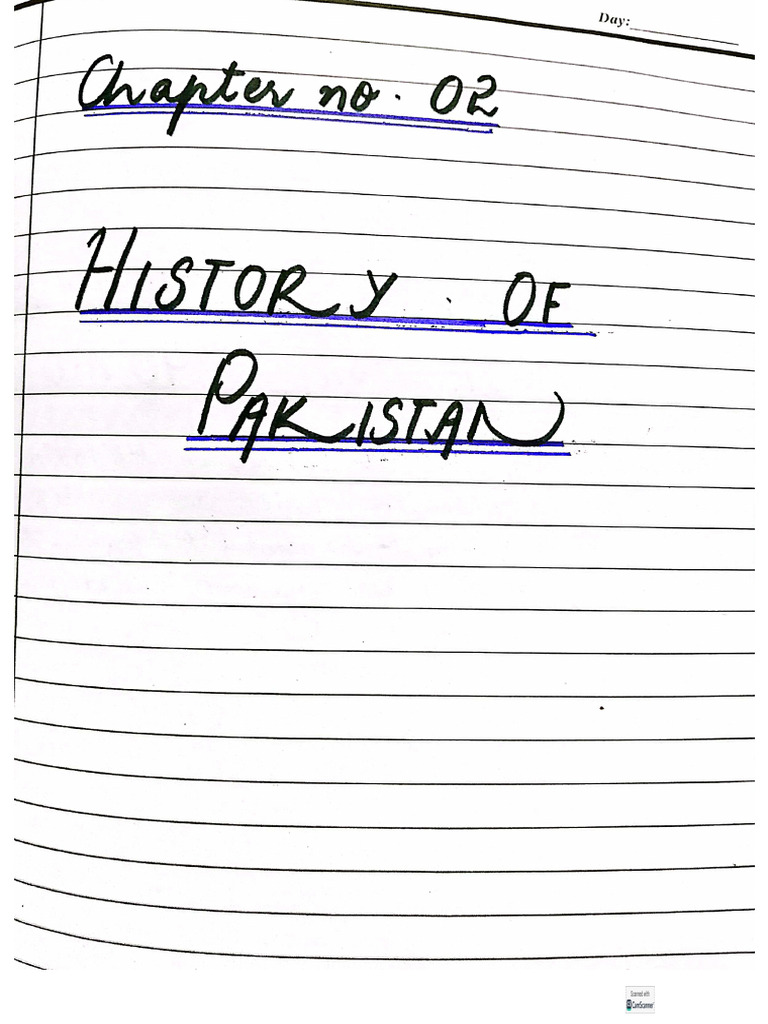 Day:
Chapter no. 02
HISTORY OF
PAKISTAN
Scanned with
CamScanner